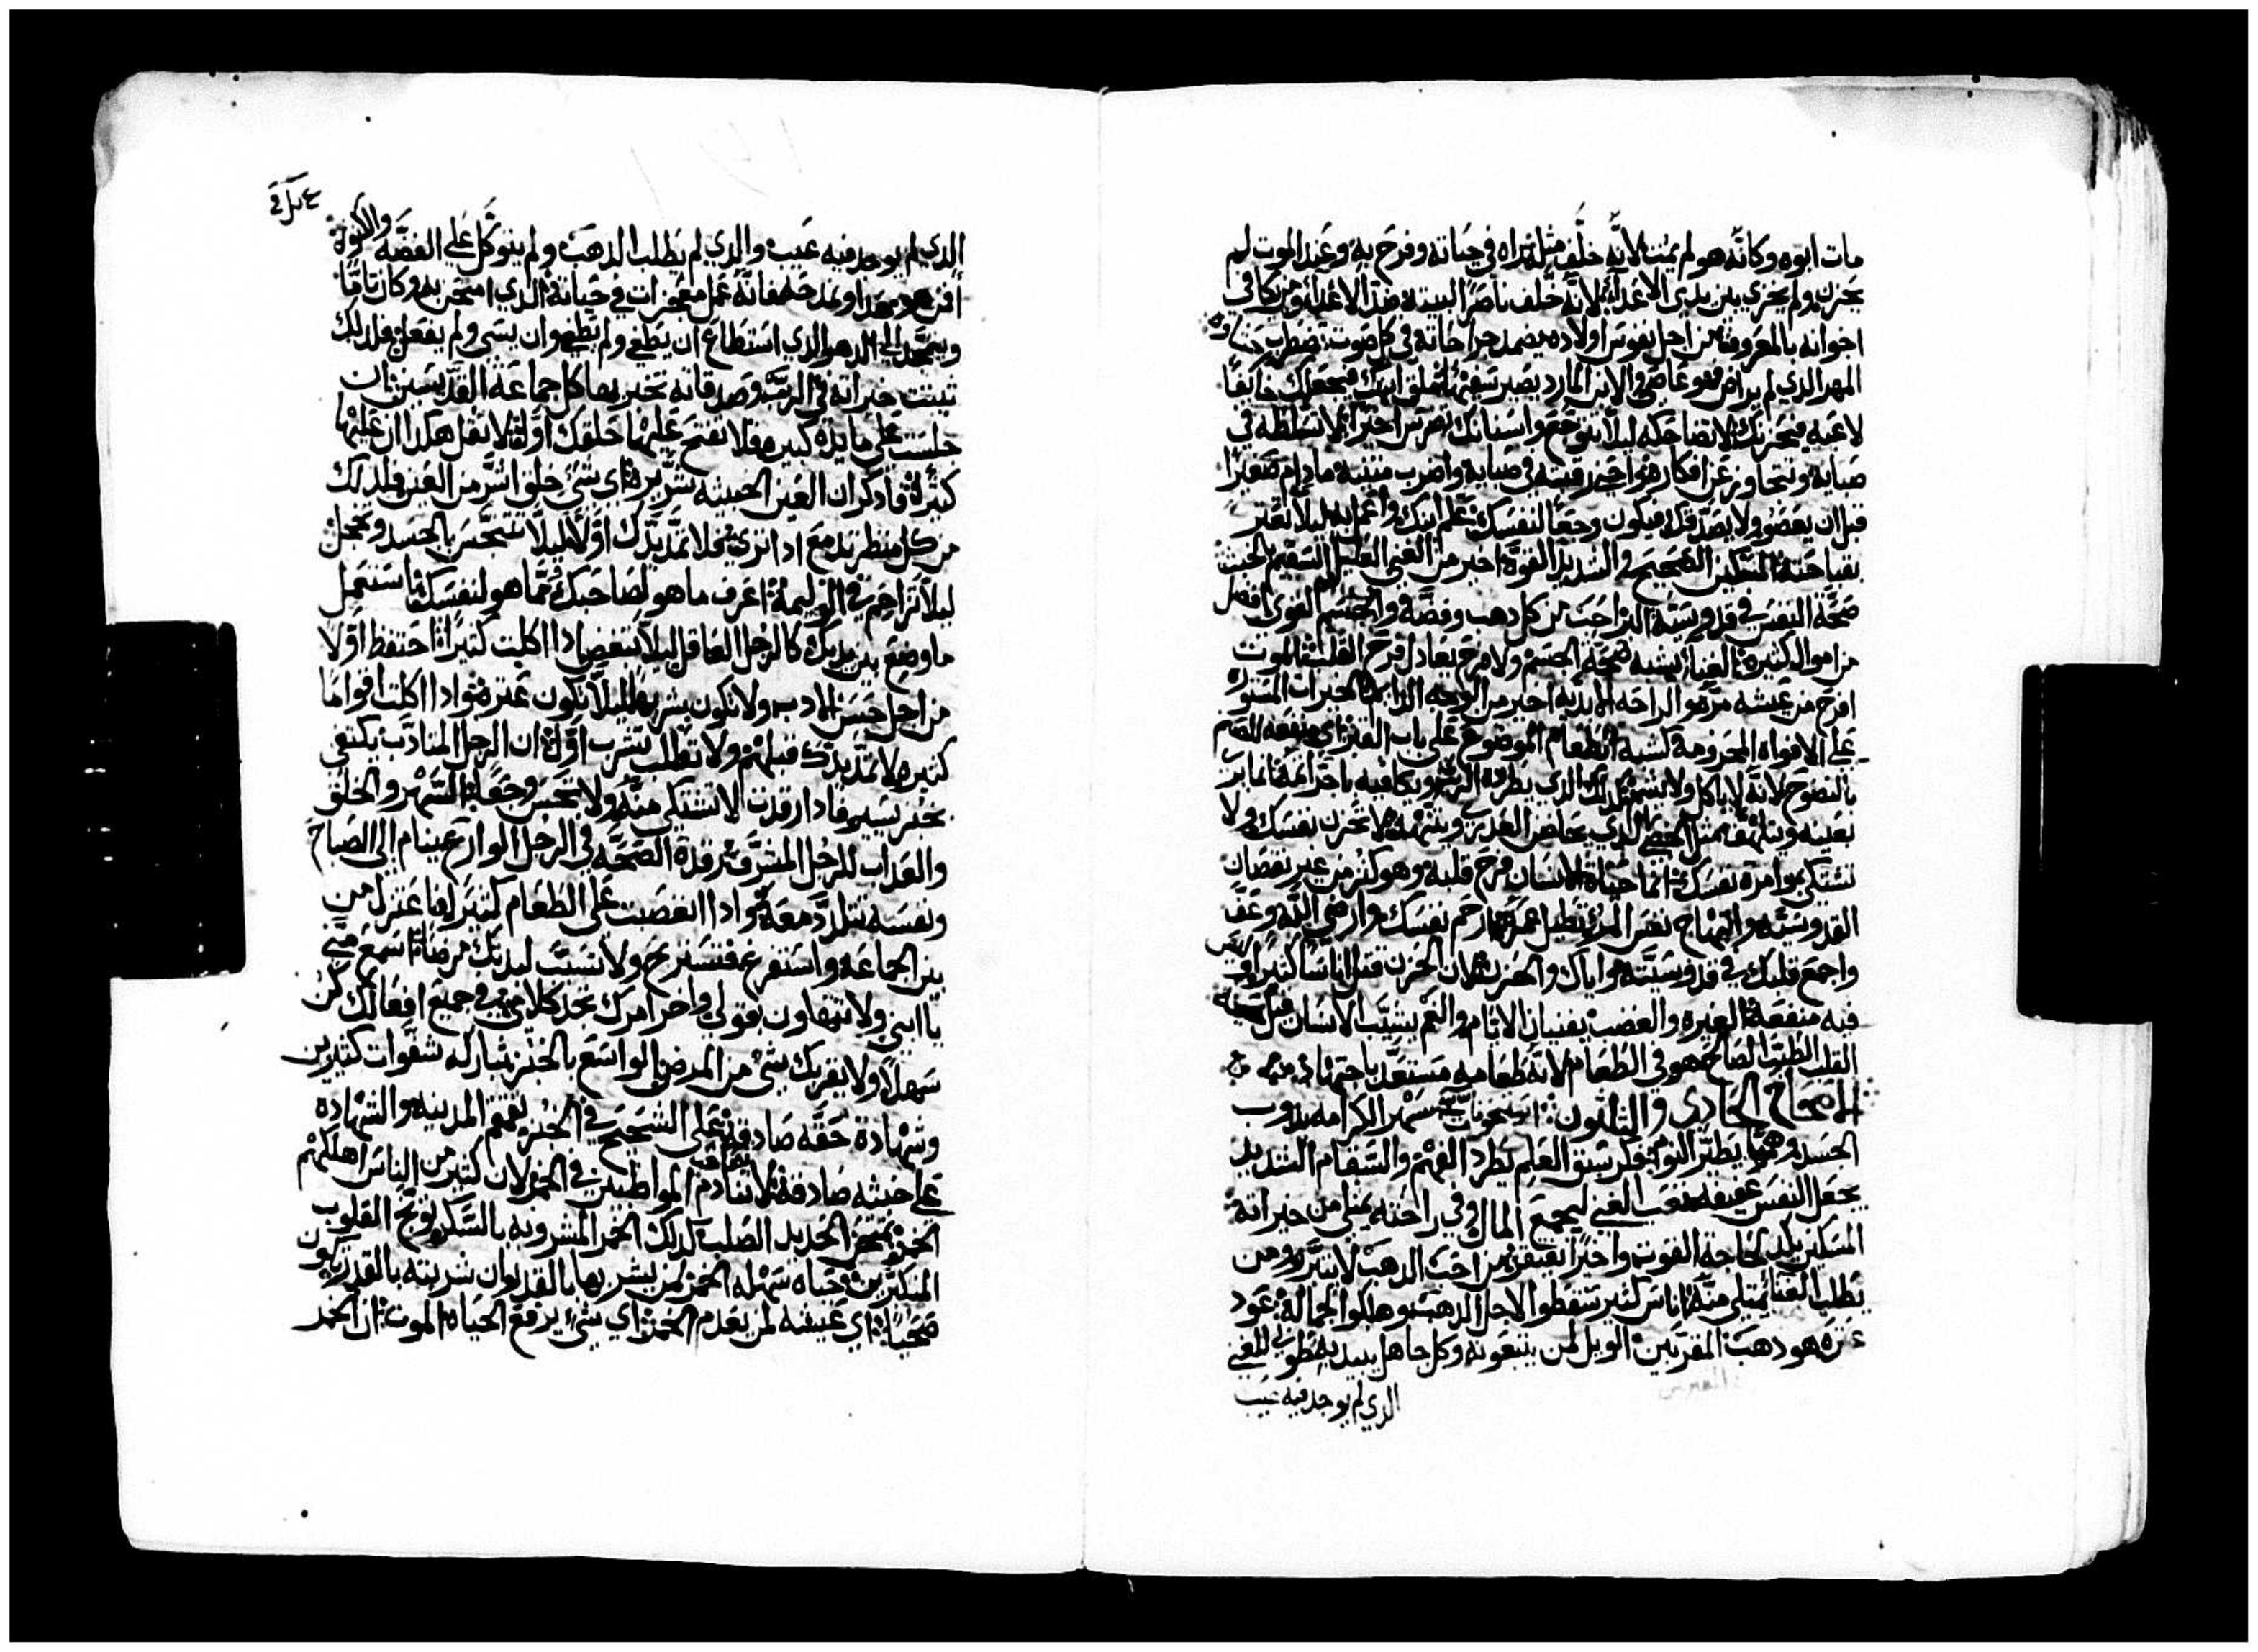 مات ابوه وكانه هو لم يمت لانه خلف مثله راه في حياته وفرح به وعند الموت لم
يحزن ولم يخزي بين يدي الاعداء لانه خلف ناصرًا لبيته ضد الاعداء ومن يكافى
اخوانه بالمعروف من اجل نفوس اولاده يضمد جراحاته في كل صوت تضطرب
المهر الذي لم يراض هو عاصي والابن المارد يصير سفيهًا تملق ابنك فيجعلك خايفًا
لاعبه فيحزنك لا تضاحكه ليلا يتوجع واسنانك تضرس اخيرًا لا تسلطه في
صباية وتتجاوز عن افكاره واحن رقبته في صبايه واضرب متنيه مادام صغيرًا
قبل ان يعصو ولا يصدقك فيكون وجعًا لنفسك علم ابنك واعمل به ليلا تعتر
بقباحته المسكين الصحيح والشديد القوة اخير من الغني القليل السقيم الخبث
صحة النفس في قدوسية البر احب من كل دهب وفضة والجسم القوي افضل
من اموال كثيرة لا غنا يشبه صحة الجسم ولا فرح يعادل فرح القلب الموت
افرح من عيشه مرة والراحه الابديه اخير من الوجه الدايم الخيرات المستوره
على الافواه المحزومة كشبه الطعام الموضوع على باب القبر اي منفعه للصنم
بالنضوح لانه لا ياكل ولا يشم كذلك الذي يطرده الرب ويكافيه باجرايمه انما يرى
بعينيه ويتلهف مثل الخصي الذي يحاضن العذرى ويتنهد لا تحزن نفسك ولا
تشتكي بوامرة نفسك انما حياة الانسان فرح قلبه وهو كنز من غير نقصان
القدوسيه وابتهاج نفس المرء تطيل عمره ارحم نفسك وارضي الله وعف
واجمع قلبك في قدوسيته واياك والحزن لان الحزن قتل اناسًا كثيرًا وليس
فيه منفعة الغيره والغضب يفنيان الايام والغم يشيب الانسان قبل حينه
القلب الطيب الصالح هو في الطعام لانه طعامه مستعد باجتهاد
الاصحاح الحادي والثلثون سهر الكرامه يذوب
الجسد وهمها يطير النوم فكر سبق العلم يطرد الفهم والسقام الشديد
يجعل النفس عفيفه تعب الغني ليجمع المال وفي راحته يمتلى من خيراته
المسكين يكد لحاجه القوت واخيرًا يفتقر من احب الدهب لا يتبرر ومن
يطلب الغنا يمتلى منه اناس كثير سقطوا لاجل الدهب وهلكوا لجماله عود
عثره هو دهب المقربين الويل لمن يتبعونه وكل جاهل يبيد به طوبى للغني
الذي لم يوجد فيه عيب
الذي لم يوجد فيه عيب والذي لم يطلب الدهب ولم يتوكل على الفضه والكنوز
من هو هذا ونمدحه فانه عمل معجزات في حياته الذي امتحن به وكان تامًا
ويتمجد الى الدهر الذي استطاع ان يطغي ولم يطغ وان يسي ولم يفعل فلذلك
تبتت خيراته في الرب وصدقاته تخبر بها كل جماعة القديسين ان
جلست على مايده كبيره فلا تفتح عليها حلقك اولا لا تقل هكذا ان عليها
كثرة فادكر ان العين الخبيثه شريره اي شي خلق اشر من العين فلذلك
من كل منظر تدمع ادا ترى فلا تمد يدك اولا ليلا تتنجس بالحسد وتخجل
ليلا تزاحم في الوليمة اعرف ما هو لصاحبك مما هو لنفسك استعمل
ما وضع بين يديك كالرجل العاقل ليلا تبغض ادا اكلت كثيرًا احتفظ اولا
من اجل حسن الادب ولا تكون شرهًا ليلا تكون عتره وادا اكلت اقوامًا
كثيره لا تمد يدك قبلهم ولا تطلب تشرب اولا ان الرجل المتادب يكتفي
بخمر يسير فادا رقدت لا تشتكي منه ولا تحس وجعًا السهر والخلق
والعداب للرجل المشرف رقدة الصحة في الرجل الوارع ينام الى الصباح
ونفسه تتلدد معه وادا انغصبت على الطعام كثيرًا فاعتزل من
بين الجماعه واستفرغ فتستريح ولا تسبب لبدنك مرضًا اسمع مني
يا ابني ولا تتهاون بقولي واخر امرك تجد كلامي في جميع افعالك كن
سهلا ولا يقربك شي من المرض الواسع بالخبز تباركه شفوات كثيرين
وشهادة حقه صادقة على الشحيح في الخبز تغتم المدينه والشهاده
على خبثه صادقة لا تنادم المواظبين في الخمر لان كثير من الناس اهلكهم
الخمر تمتحن الحديد الصلب كذلك الخمر المشروبه بالسكر توبخ القلوب
المتكبرين وحياه سهله الخمر لمن يشربها بالقدر وان شربته بالقدر تكون
صحيًا اي عيشه لمن يعدم الخمر اي شي يرفع الحياه الموت ان الخمر